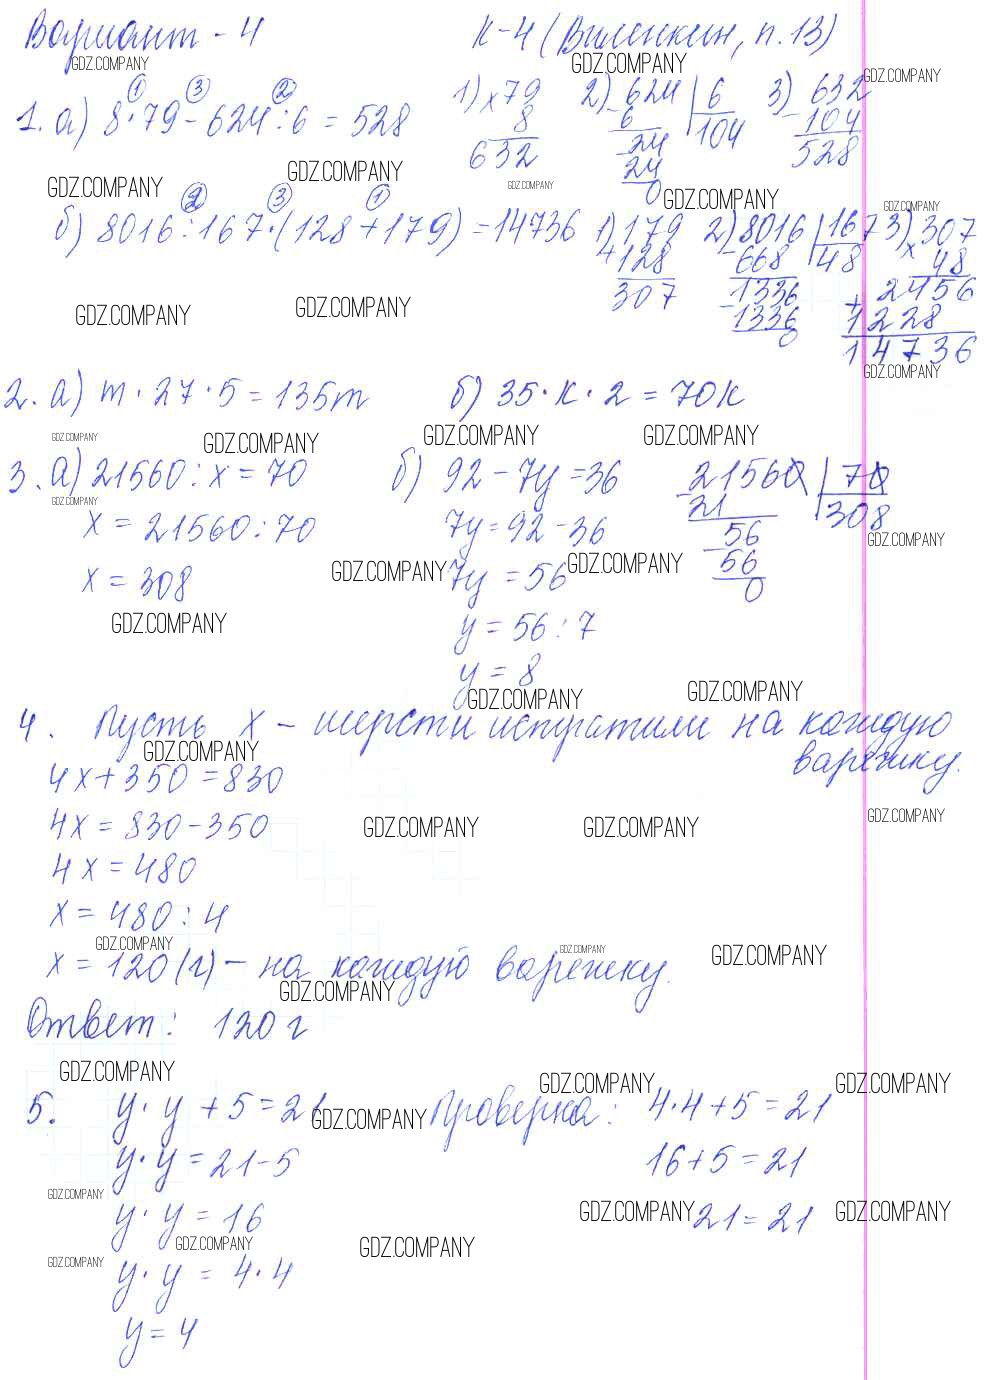 Вариант - 4 К-4 (Виленкин, п.13)
GDZ.COMPANY GDZ.COMPANY GDZ.COMPANY
① ③ ②
1. а) 8·79 - 624 : 6 = 528
1) ×79
8
632
2) 624 | 6
- 6 104
- 24
24
0
3) - 632
104
528
GDZ.COMPANY GDZ.COMPANY GDZ.COMPANY GDZ.COMPANY GDZ.COMPANY
② ③ ①
б) 8016 : 167 · (128 + 179) = 14736
1) + 179
128
307
2) - 8016 | 167
668 48
- 1336
1336
0
3) × 307
48
+ 2456
1228
14736
GDZ.COMPANY GDZ.COMPANY GDZ.COMPANY
2. а) m · 27 · 5 = 135m б) 35 · к · 2 = 70к
GDZ.COMPANY GDZ.COMPANY GDZ.COMPANY GDZ.COMPANY
3. а) 21560 : x = 70
GDZ.COMPANY
x = 21560 : 70
x = 308
GDZ.COMPANY
б) 92 - 7y = 36
7y = 92 - 36
GDZ.COMPANY 7y = 56 GDZ.COMPANY
y = 56 : 7
y = 8
- 21560 | 70
21 308
- 56
56
0
GDZ.COMPANY
GDZ.COMPANY GDZ.COMPANY
4. Пусть x - шерсти истратили на каждую
варежку.
GDZ.COMPANY
4x + 350 = 830
4x = 830 - 350
GDZ.COMPANY GDZ.COMPANY GDZ.COMPANY
4x = 480
x = 480 : 4
GDZ.COMPANY GDZ.COMPANY GDZ.COMPANY
x = 120 (г) - на каждую варежку.
GDZ.COMPANY
Ответ: 120 г
GDZ.COMPANY GDZ.COMPANY GDZ.COMPANY
5. y · y + 5 = 21 GDZ.COMPANY Проверка: 4·4 + 5 = 21
y · y = 21 - 5 16 + 5 = 21
GDZ.COMPANY
y · y = 16 GDZ.COMPANY 21 = 21 GDZ.COMPANY
GDZ.COMPANY GDZ.COMPANY GDZ.COMPANY
y · y = 4 · 4
y = 4